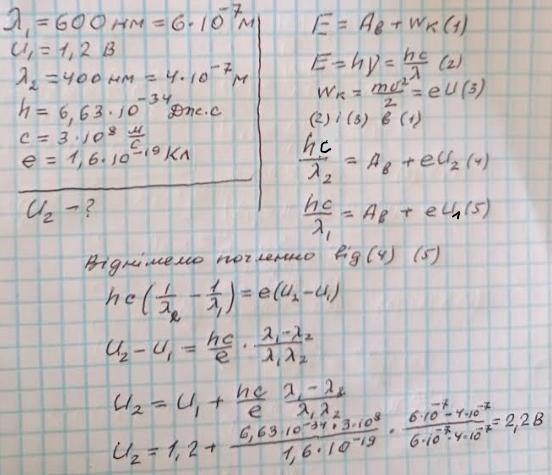 λ₁ = 600 нм = 6·10⁻⁷ м
U₁ = 1,2 В
λ₂ = 400 нм = 4·10⁻⁷ м
h = 6,63·10⁻³⁴ Дж·с
c = 3·10⁸ м/с
e = 1,6·10⁻¹⁹ Кл
U₂ - ?
E = Aв + Wк (1)
E = hν = hc/λ (2)
Wк = mv²/2 = eU (3)
(2) і (3) в (1)
hc/λ₂ = Aв + eU₂ (4)
hc/λ₁ = Aв + eU₁ (5)
Віднімемо почленно від (4) (5)
hc(1/λ₂ - 1/λ₁) = e(U₂ - U₁)
U₂ - U₁ = hc/e · (λ₁ - λ₂)/(λ₁λ₂)
U₂ = U₁ + hc/e (λ₁ - λ₂)/(λ₁λ₂)
U₂ = 1,2 + (6,63·10⁻³⁴·3·10⁸)/(1,6·10⁻¹⁹) · (6·10⁻⁷ - 4·10⁻⁷)/(6·10⁻⁷·4·10⁻⁷) = 2,2 В